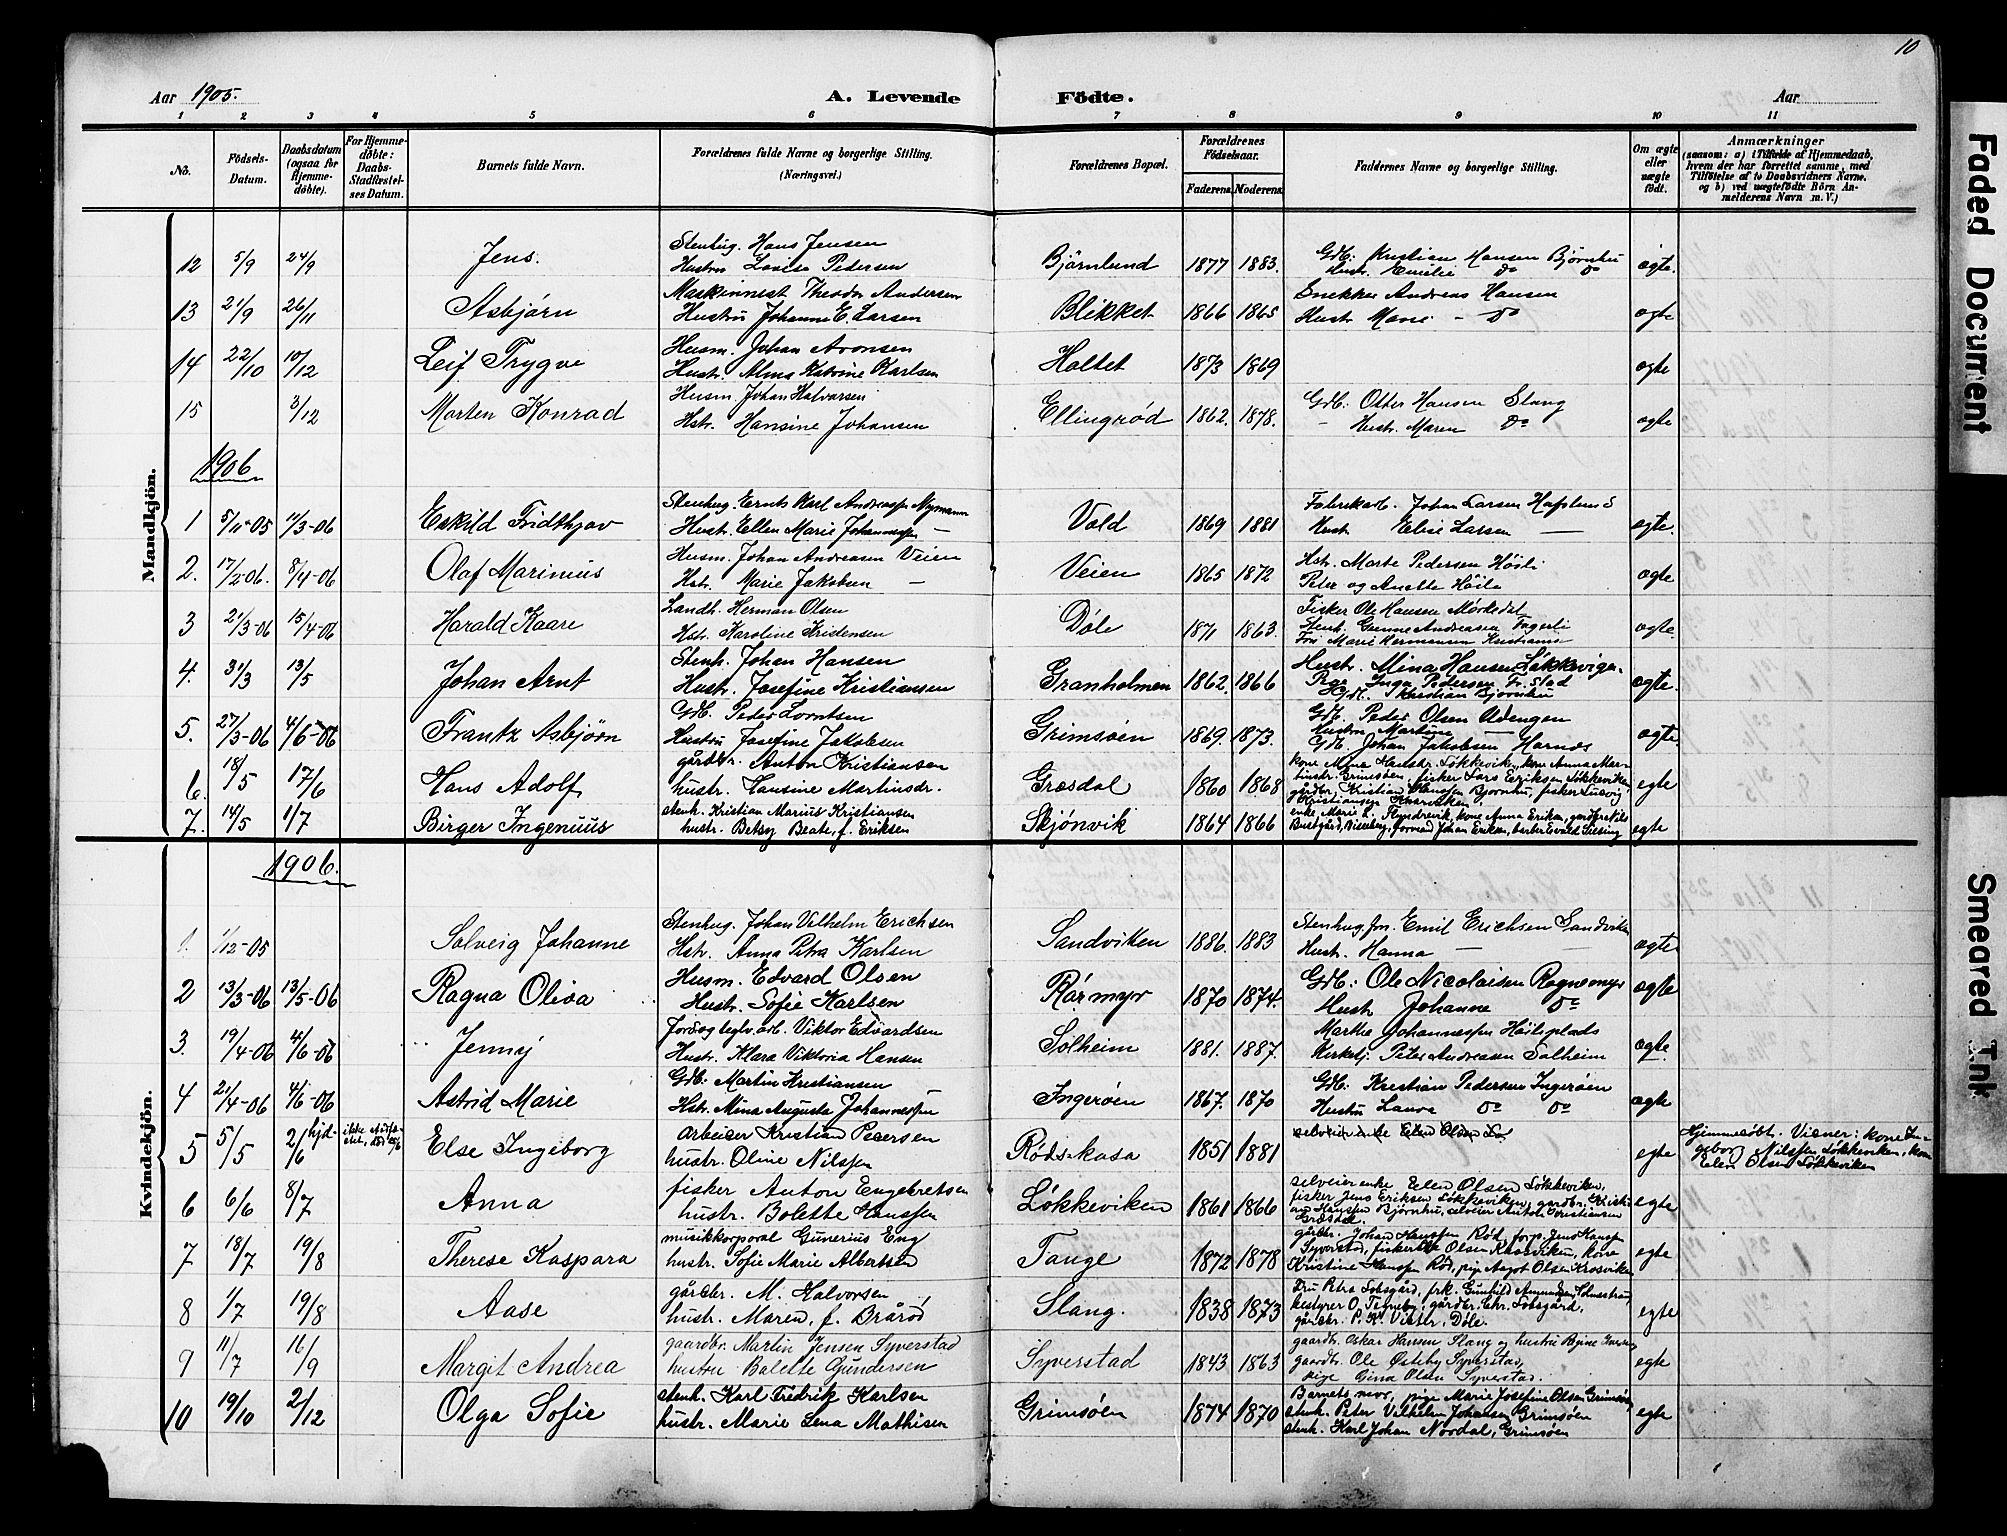 10
Aar 1905.
A. Levende Födte.
Aar
1 2 3 4 5 6 7 8 9 10 11
No.
Födsels-Datum.
Daabsdatum (ogsaa for Hjemme-döbte).
For Hjemme-döbte: Daabs-Stadfæstel-ses Datum.
Barnets fulde Navn.
Forældrenes fulde Navne og borgerlige Stilling. (Næringsvei.)
Forældrenes Bopæl.
Forældrenes Födselsaar.
Faderens. Moderens.
Faddernes Navne og borgerlige Stilling.
Om ægte eller uægte födt.
Anmærkninger
(saasom: a) i Tilfælde af Hjemmedaab, hvem der har forrettet samme, med Tilföielse af to Daabsvidners Navne, og b) ved uægtefödte Börn An-melderens Navn m. V.)
Mandkjön.
12 5/9 24/9 Jens. Stenhug. Hans Jensen Björnlund 1877 1883. Gdb. Kristian Hansen Bjørnhu ægte.
Hustru Lovisa Pedersen Hust. Emilie Do Do
13 21/9 26/11 Asbjørn Maskinnest Theodor Andersen Blikket 1866 1865 Snekker Andreas Hansen ægte
Hustru Johanne E. Larsen Hust. Marie - Do
14 22/10 10/12 Leif Trygve Husm. Johan Aronsen Holtet 1873 1869 ægte
Hustr. Alma Katrine Karlsen
15 3/12 Morten Konrad Husm. Johan Halvorsen Ellingrød 1862. 1878. Gdb: Otter Hansen Slang ægte
Hstr. Hansine Johansen - Hustr. Maren Do
1906
1 5/11-05 11/3-06 Eskild Fridthjov Stenhug. Ernts Karl Andreasen Nymann Vold 1869 1881 Fabrikarb. Johan Larsen Hafslund ægte.
Hust. Ellen Marie Johannessen - Hust Elise Larsen -
2. 17/2-06. 8/4-06 Olaf Marinius Husm. Johan Andreasen Veien Veien 1865 1872 Hst. Marte Pedersen Höili ægte
Hst. Marie Jakobsen - Peter og Anette Höile
3 21/3-06 15/4-06 Harald Kaare Landh. Herman Olsen Döle 1871 1863. Fisker Ole Hansen Mörkedal ægte.
Hst. Karoline Kristensen Stenh. Gunne Andreasen Fagerli
Frk Marie Hermansen Kristiania
4. 31/3 13/5 Johan Arnt Stenh. Johan Hansen Granholmen 1862. 1866 Hustr. Mina Hansen Løkkevigen ægte.
Hust. Josefine Kristiansen Pige Inga Pedersen Fr.stad
Gdb. Kristian Bjørnhu
5. 27/3-06 4/6-06 Frantz Asbjørn Gdb. Peder Lorntsen Grimsøen 1869. 1873. Gdb. Peder Olsen Udengen ægte.
Hustru Josefine Jakobsen Hustru Martine -
Gdb. Johan Jakobsen Hornes
6. 18/5 17/6 Hans Adolf gårdbr. Anton Kristiansen Græsdal 1860 1868 kone Mina Løkkevik, kone Anna Mar- egte
hustr. Hansine Martinsdr. tinstr. Grimsøen, fisker Lars Eriksen Løkkeviken,
gårdbr. Kristian Hanssen Bjørnhu, fisker Ludvig
Kristiansen Knarviken.
7. 14/5 1/7 Birger Ingenuus stenh. Kristian Marius Kristiansen Skjønvik 1864 1866 enke Marie L. Flyndrevik, kone Anna Eriksen, gårdbr Nils egte
hustr. Betsy Beate, f. Eriksen formand Johan Eriksen, barber Evald
Kvindekjön.
1906.
1. 1/12-05 Solveig Johanne Stenhug. Johan Vilhelm Erichsen Sandviken 1886. 1883 Stenhug. fm. Emil Erichsen Sandviken ægte
Hst. Anna Petra Karlsen Hust. Hanna - -
2 13/3-06 13/5-06 Ragna Oliva Husm. Edvard Olsen Rørmyr 1870 1874. Gdb: Ole Nicolaisen Rognemyr ægte
Hust. Sofie Karlsen Hust Johanne Do
3. 19/4-06 4/6-06 Jenny Jordog teglv. arb. Viktor Edvardsen Solheim 1881. 1887. Marthe Johannessen Höilsplads ægte
Hust. Klara Viktoria Hansen Kirkebj. Peter Andreasen Solheim
4 21/4-06 4/6-06 Astrid Marie Gdb: Martin Kristiansen Ingerøen 1867. 1870 Gdb. Kristian Pedersen Ingerøen ægte
Hst. Mina Auguste Johannessen Hustru Laura Do Do
5 5/5 2/6 hjd- ikke stadfæ-stet, död Else Ingeborg arbeider Kristian Pedersen Rødskasa 1851 1881 selveierenke Elen Olsen Lø egte Hjemmedöbt. Vidner: kone In-
hustr. Oline Nilssen geborg Nilssen Løkkeviken, kone
Elen Olsen Løkkeviken
6 6/6 8/7 Anna fisker Anton Engebretsen Løkkeviken 1861 1866 selveierenke Elen Olsen Løkkeviken, egte
hustr. Bolette Hanssen fisker Jens Eriksen Løkkeviken, gårdbr. Kristi-
an Hanssen Bjørnhu, selveier Anton Kristiansen
Græsdal.
7 18/7 19/8 Therese Kaspara musikkorporal Gunerius Eng Tange 1872 1878 gårdbr. Johan Hanssen Rød, forp. Jens Hanssen egte
hustr. Sofie Marie Albertsen Syverstad, fisker Ole Olsen Krosviken, kone
Kristine Hanssen Rød, pige Aagot Olsen Krosviken
8 1/7 19/8 Aase gårdbr. M. Halvorsen Slang. 1838 1873 Fru Petra Lobsgård, frk. Gunhild Amundsen, egte
hustr. Maren, f. Brårød bestyrer O. Tenneby, gårdbr. Chr. Lobsgård,
gårdbr. P. K. Døle.
9 11/7 16/9 Margit Andrea gaardbr. Martin Jensen Syverstad Syverstad 1843 1863 gaardb. Oskar Hansen Slang og hustru egte
hustru Bolette Gundersen gaardb. Ole Østeby Syverstad,
pige Gina Olsen Syverstad.
10 19/10 2/12 Olga Sofie stenh. Karl Fredrik Karlsen Grimsøen 1874 1870 Barnets mor, pige Marie Josefine Olsen Grimsøen, egte
hustr. Marie Lena Mathisen stenh. Peter Vilhelm Johansen Grimsøen
stenh. Karl Johan Nordal, Grimsøen
Faded Document
Smeared Ink